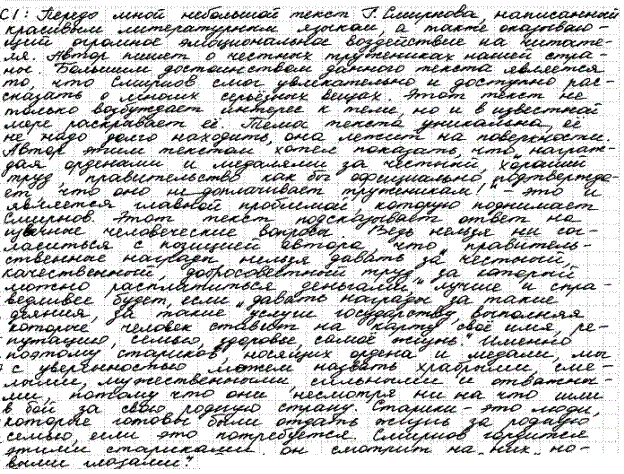 С1: Передо мной небольшой текст Г. Смирнова, написанный
красивым литературным языком, а также оказываю-
щий огромное эмоциональное воздействие на читате-
ля. Автор пишет о честных тружениках нашей стра-
ны. Большим достоинством данного текста является
то, что Смирнов смог увлекательно и доступно рас-
сказать о многих серьёзных вещах. Этот текст не
только возбуждает интерес к теме, но и в известной
мере раскрывает её. Тема текста уникальна, её
не надо долго находить, она лежит на поверхности.
Автор этим текстом хотел показать, что, награж-
дая орденами и медалями за честный хороший
труд, правительство как бы официально „подтвержда-
ет, что оно не доплачивает труженикам!" – это и
является главной проблемой, которую поднимает
Смирнов. Этот текст подсказывает ответ на
вечные человеческие вопросы. Ведь нельзя ни со-
гласиться с позицией автора, что „правитель-
ственные награды нельзя давать за честный,
качественный, добросовестный труд, за который
можно расплатиться деньгами", лучше и спра-
ведливее будет, если „давать награды за такие
деяния, за такие услуги государству, выполняя
которые человек ставит на карту своё имя, ре-
путацию, семью, здоровье, самоё жизнь". Именно
поэтому стариков, носящих ордена и медали, мы
с уверенностью можем назвать храбрыми, сме-
лыми, мужественными, сильными и отважны-
ми, потому что они, несмотря ни на что шли
в бой за свою родную страну. Старики – это люди,
которые готовы были отдать жизнь за родную
семью, если это потребуется. Смирнов гордится
этими стариками, он смотрит на них „но-
выми глазами".